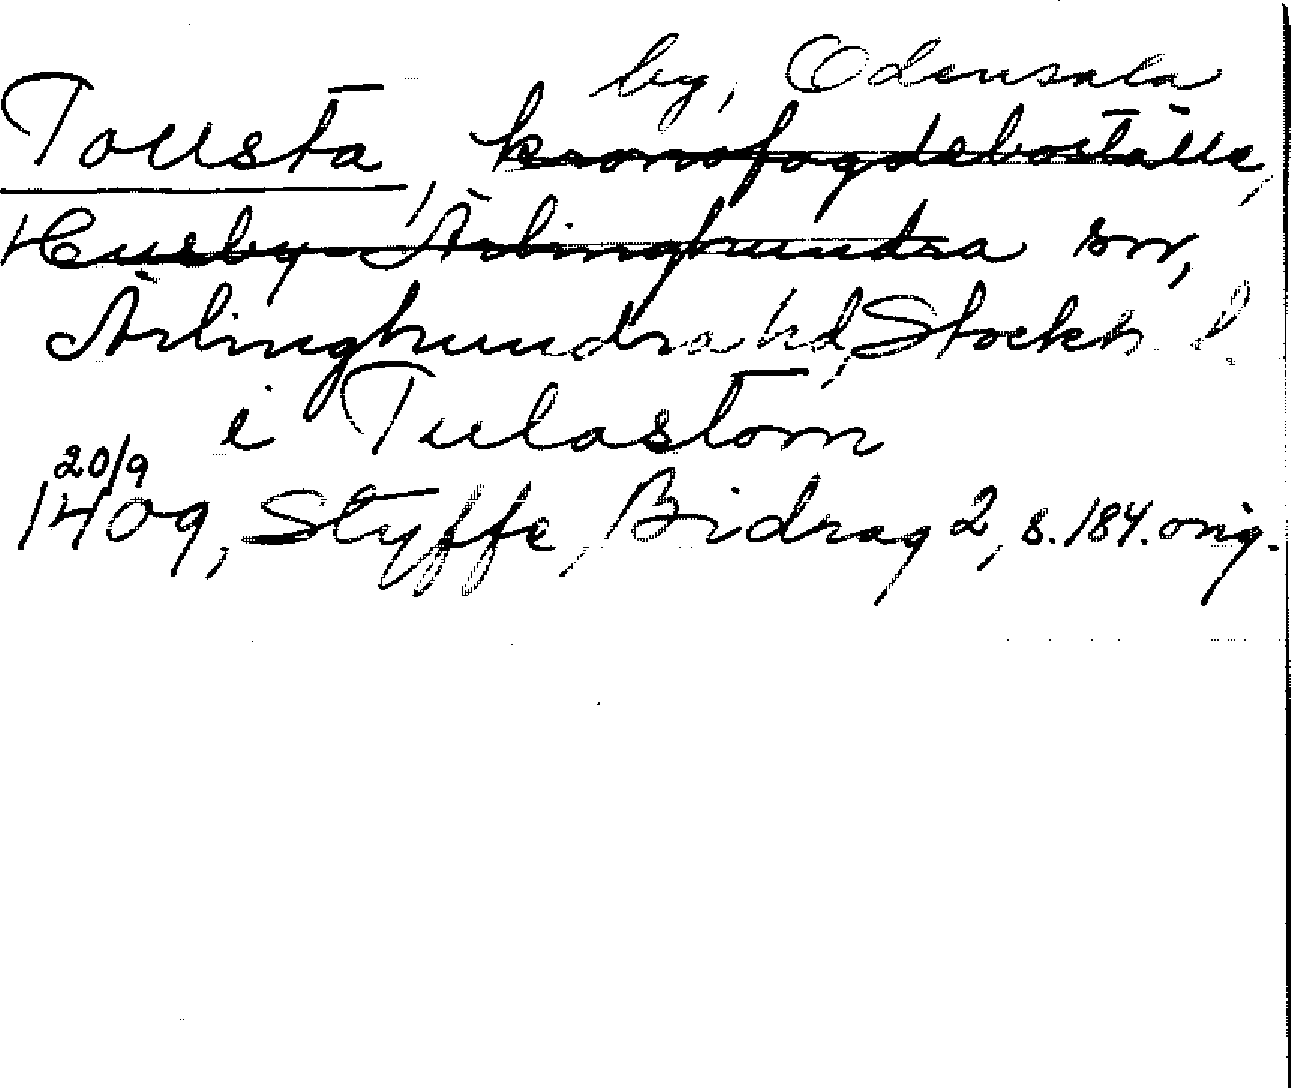 by, Odensala
Tollsta, kronofogdeboställe,
Husby-Ärlinghundra sn,
Ärlinghundra hd, Stockh. l.
i Tulastom
20/9
1409, Styffe, Bidrag 2, s. 184. orig.